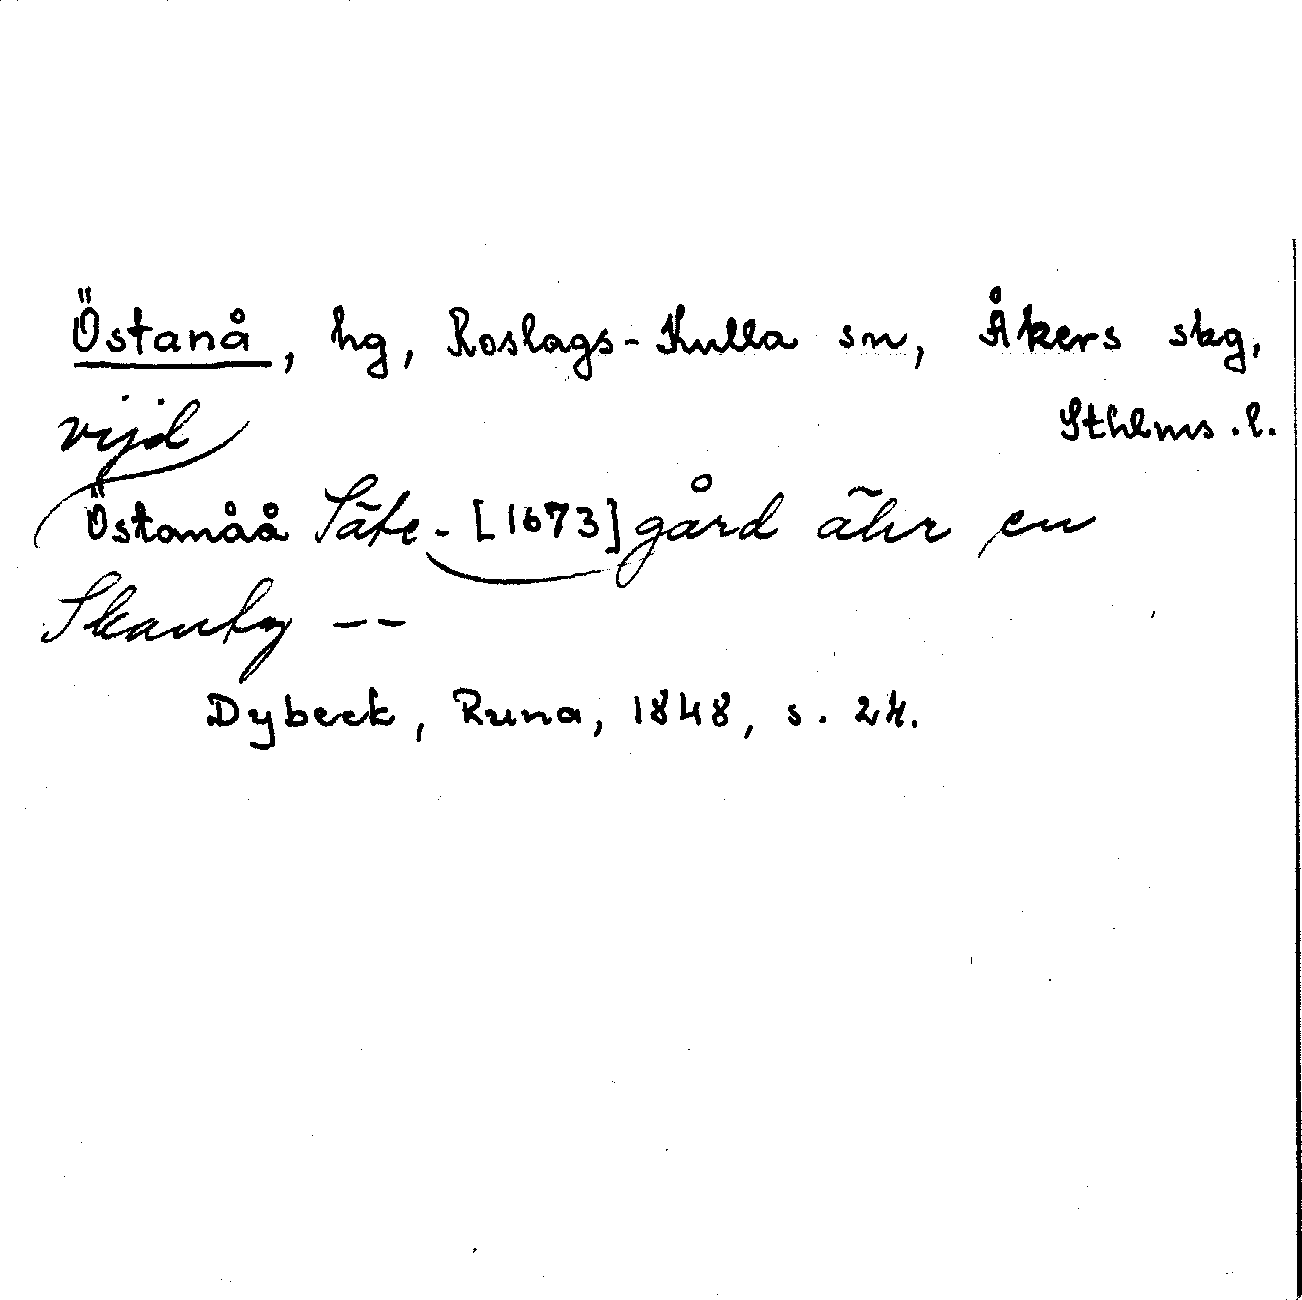 Östanå, hg, Roslags-Kulla sn, Åkers skg,
Sthlms. l.
vijd
Östanåå Säte-[1673]gård ähr en
Skantz --
Dybeck, Runa, 1848, s. 24.